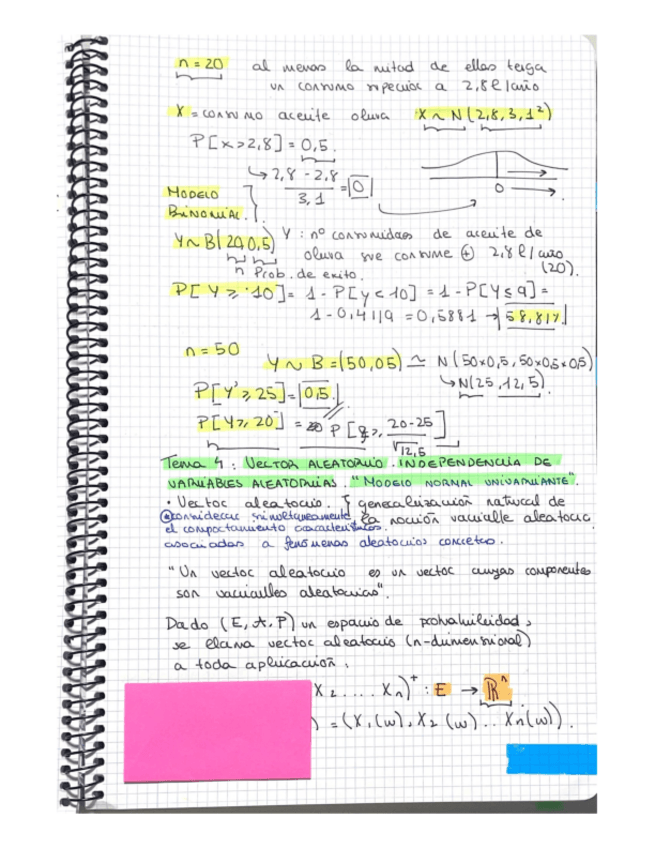 n = 20 al menos la mitad de ellas tenga
un consumo superior a 2,8 l/año
X = consumo aceite oliva X ~ N(2,8, 3,1²)
P[X>2,8] = 0,5.
↳ 2,8 - 2,8 / 3,1 = 0
0
MODELO
BINOMIAL.
Y~B(20,0,5) Y: nº consumidores de aceite de
oliva que consume ⊕ 2,8 l/año
n Prob. de exito. (20).
P[Y ≥ 10] = 1 - P[Y < 10] = 1 - P[Y ≤ 9] =
1 - 0,4119 = 0,5881 → 58,81%.
n = 50
Y ~ B = (50,05) ≃ N(50×0,5, 50×0,5×0,5)
↳ N(25, 12,5).
P[Y ≥ 25] = 0,5.
P[Y ≥ 20] = P[Z ≥ 20-25 / √12,5]
Tema 4: VECTOR ALEATORIO. INDEPENDENCIA DE
VARIABLES ALEATORIAS. "MODELO NORMAL UNIVARIANTE".
• Vector aleatorio generalización natural de
la noción variable aleatoria
considerar simultaneamente
el comportamiento características
asociadas a fenómenos aleatorios concretos.
"Un vector aleatorio es un vector cuyas componentes
son variables aleatorias".
Dado (E, A, P) un espacio de probabilidad,
se llama vector aleatorio (n-dimensional)
a toda aplicación:
X2 .... Xn)ᵗ : E → ℝⁿ
) = (X1(w), X2(w)... Xn(w)).